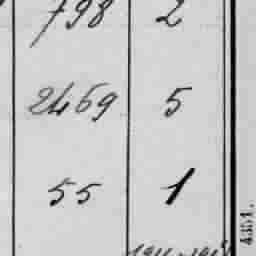 798 2
2469 5
55 1
4351.